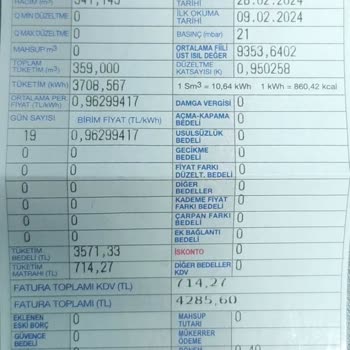 HACİM (m³) 341,145 TARİHİ 28.02.2024
Q MIN DÜZELTME 0 İLK OKUMA TARİHİ 09.02.2024
Q MAX DÜZELTME 0 BASINÇ (mbar) 21
MAHSUP m³ 0 ORTALAMA FİİLİ ÜST ISIL DEĞER 9353,6402
TOPLAM TÜKETİM (m³) 359,000 DÜZELTME KATSAYISI (K) 0,950258
TÜKETİM (kWh) 3708,567 1 Sm³ = 10,64 kWh 1 kWh = 860,42 kcal
ORTALAMA PER. FİYAT (TL/kWh) 0,96299417 DAMGA VERGİSİ 0
GÜN SAYISI BİRİM FİYAT (TL/kWh) AÇMA-KAPAMA BEDELİ 0
19 0,96299417 USULSÜZLÜK BEDELİ 0
0 0 GECİKME BEDELİ 0
0 0 FİYAT FARKI DÜZELT. BEDELİ 0
0 0 DİĞER BEDELLER 0
0 0 KADEME FİYAT FARKI BEDELİ 0
0 0 ÇARPAN FARKI BEDELİ 0
0 0 EK BAĞLANTI BEDELİ 0
TÜKETİM BEDELİ (TL) 3571,33 İSKONTO 0
TÜKETİM MATRAHI (TL) 714,27 DİĞER BEDELLER KDV 0
FATURA TOPLAMI KDV (TL) 714,27
FATURA TOPLAMI (TL) 4285,60
EKLENEN ESKİ BORÇ 0 MAHSUP TUTARI 0
GÜVENCE BEDELİ 0 MÜKERRER ÖDEME 0